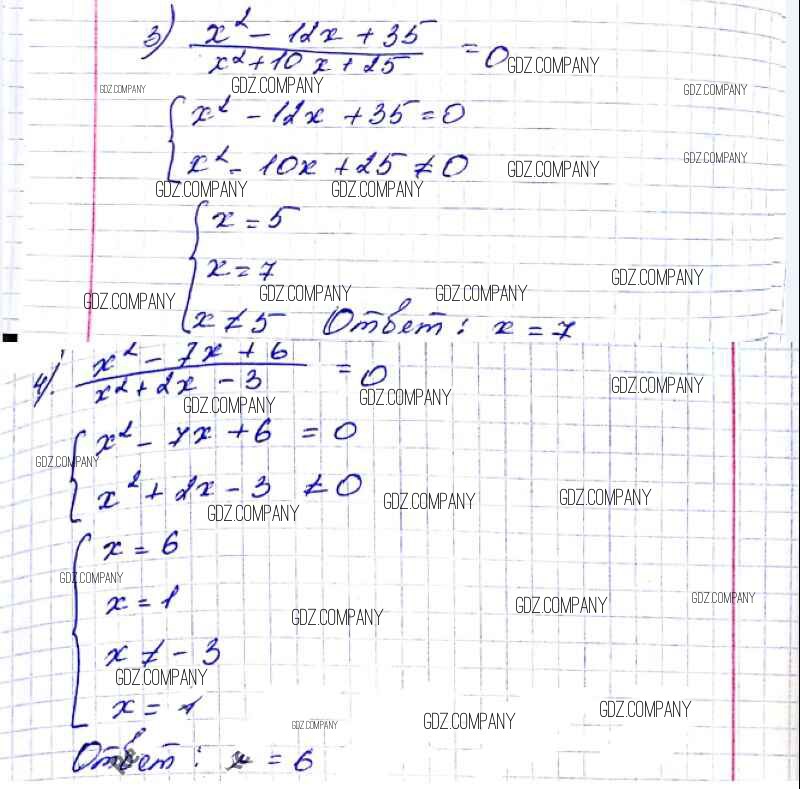 3) x² - 12x + 35
x² + 10x + 25 = 0 GDZ.COMPANY
GDZ.COMPANY GDZ.COMPANY GDZ.COMPANY
x² - 12x + 35 = 0
x² - 10x + 25 ≠ 0 GDZ.COMPANY GDZ.COMPANY
GDZ.COMPANY GDZ.COMPANY
x = 5
x = 7
GDZ.COMPANY GDZ.COMPANY GDZ.COMPANY GDZ.COMPANY
x ≠ 5 Ответ: x = 7
4) x² - 7x + 6
x² + 2x - 3 = 0 GDZ.COMPANY
GDZ.COMPANY GDZ.COMPANY
x² - 7x + 6 = 0
GDZ.COMPANY
x² + 2x - 3 ≠ 0
GDZ.COMPANY GDZ.COMPANY GDZ.COMPANY
x = 6
GDZ.COMPANY
x = 1
GDZ.COMPANY GDZ.COMPANY GDZ.COMPANY
x ≠ -3
GDZ.COMPANY
x = 1
GDZ.COMPANY GDZ.COMPANY GDZ.COMPANY
Ответ: x = 6